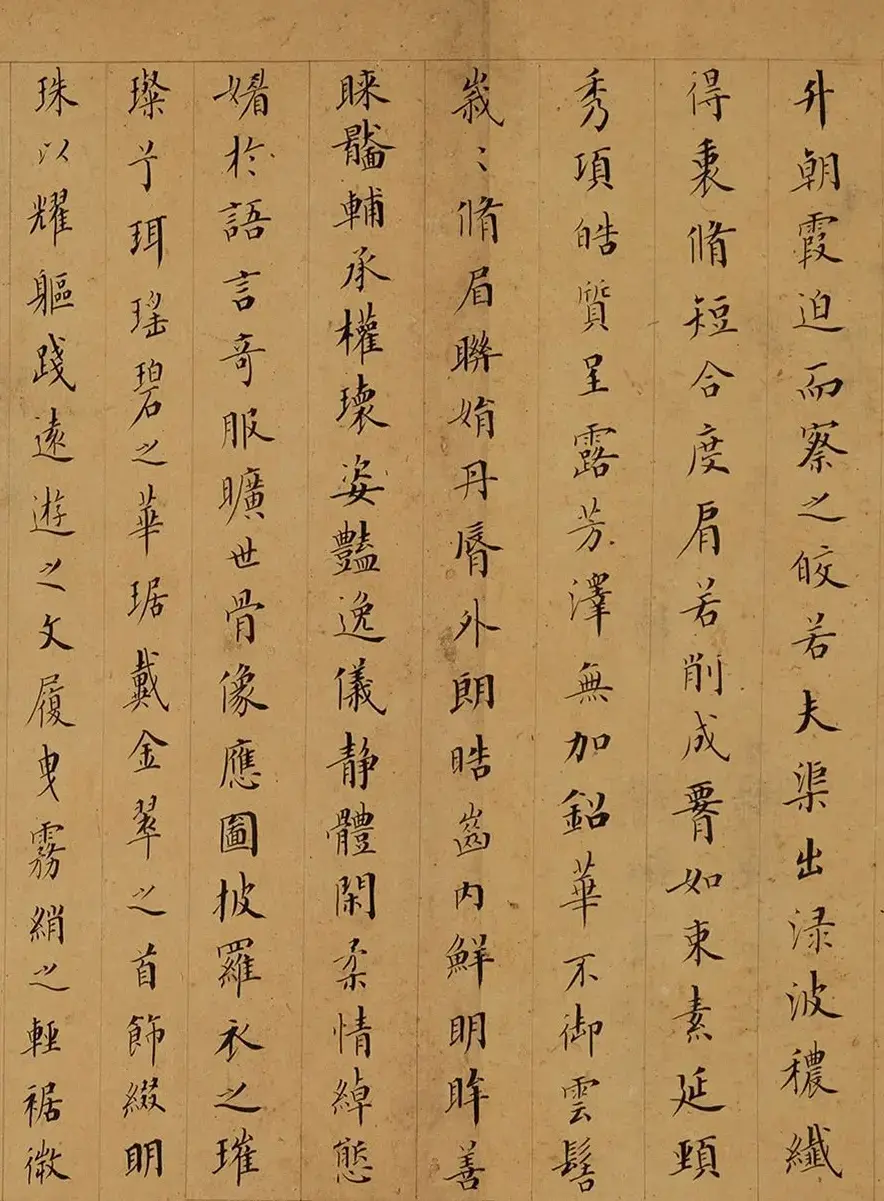 升朝霞迫而察之皎若夫渠出渌波穠纖
得衷脩短合度肩若削成署如束素延頸
秀項皓質呈露芳澤無加鉛華不御雲髻
峩〻脩眉聮娟丹脣外朗晧齒内鮮明眸善
睞靨輔承權瓌姿豔逸儀静體閑柔情綽態
媚於語言竒服曠世骨像應圖披羅衣之璀
璨兮珥瑶碧之華琚戴金翠之首飾綴明
珠以耀軀踐遠遊之文履曳霧綃之輕裾微